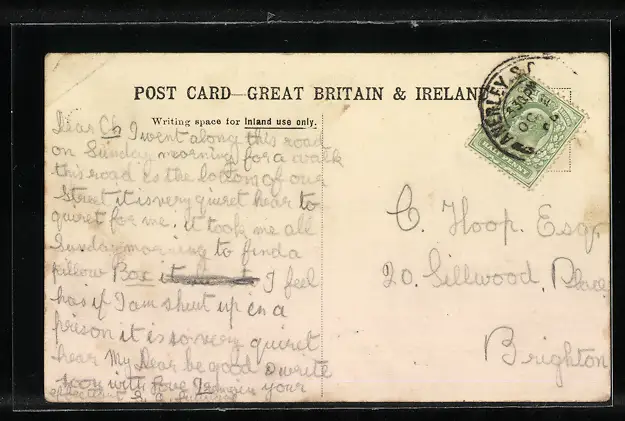 POST CARD—GREAT BRITAIN & IRELAND
Writing space for Inland use only.
Dear Ch I went along this road
on Sunday morning for a walk
this road is the bottom of our
Street it is very quiret hear to
quiret for me, it took me all
Sunday morning to find a
pillow Box I feel
has if I am shut up in a
prison it is so very quiret
hear My Dear be good & write
soon with love I remain your
ANERLEY. S.
HALFPENNY
C. Hoop. Esqr
20. Sillwood. Place
Brighton